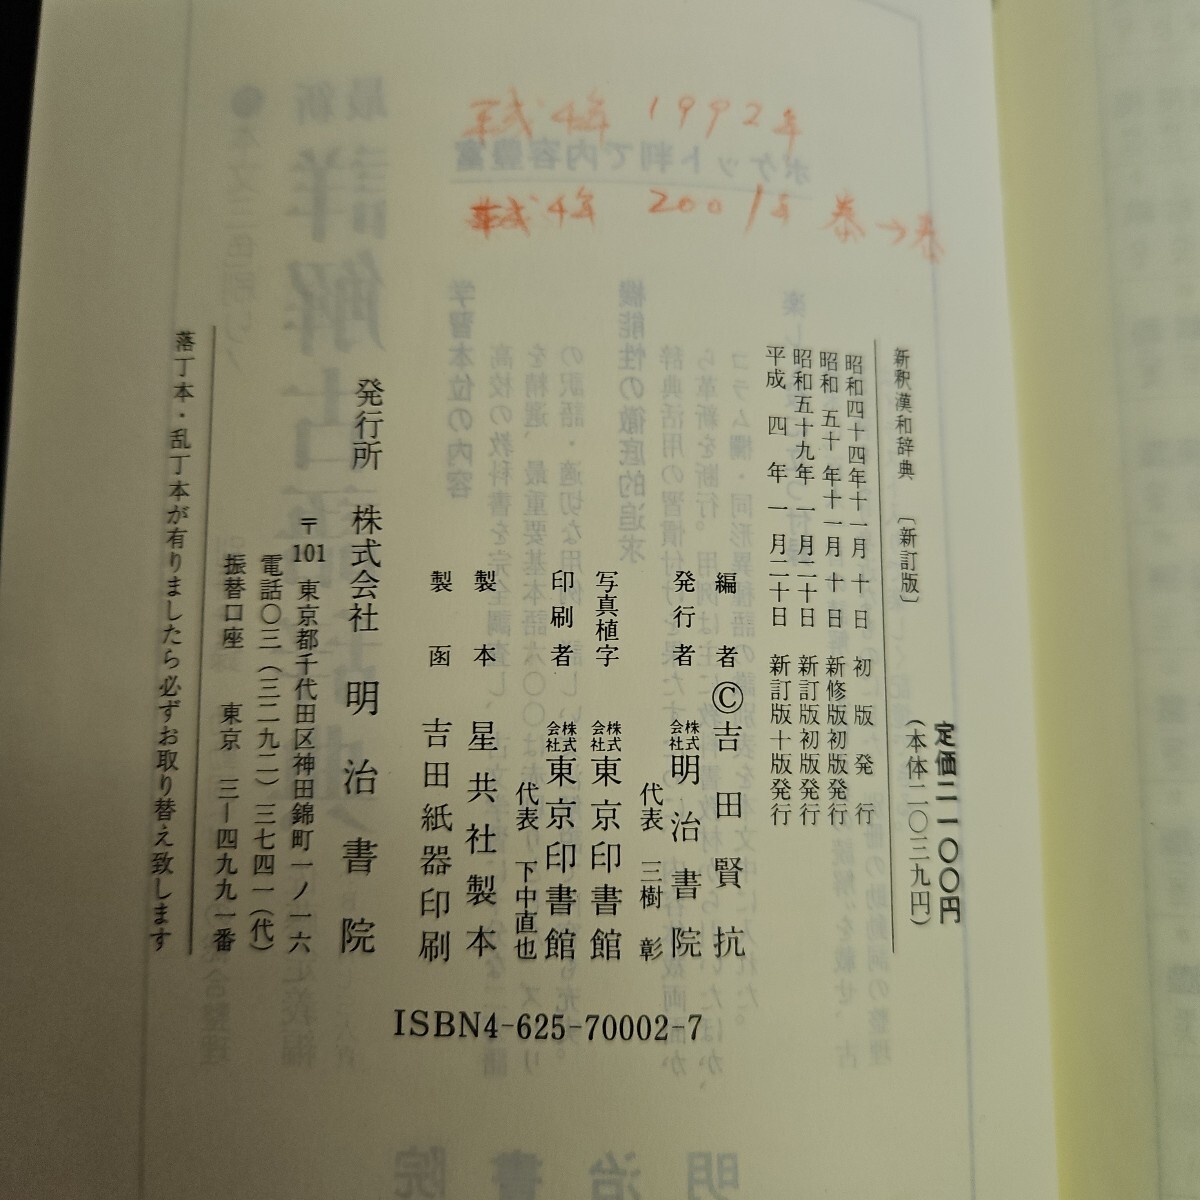 平成4年 1992年
平成4年 2001年 恭→恭
新釈漢和辞典 〔新訂版〕
定価二一〇〇円
(本体二〇三九円)
昭和四十四年十一月 十日 初版発行
昭和 五十 年十一月 十日 新修版初版発行
昭和五十九年 一月二十日 新訂版初版発行
平成 四 年 一月二十日 新訂版十版発行
編者 ©吉田賢抗
発行者 株式会社明治書院
代表 三樹 彰
写真植字 株式会社東京印書館
印刷者 株式会社東京印書館
代表 下中直也
製本 星共社製本
製函 吉田紙器印刷
発行所 株式会社 明治書院
〒101 東京都千代田区神田錦町一ノ一六
電話〇三(三二九二)三七四一(代)
振替口座 東京 三—四九九一番
落丁本・乱丁本が有りましたら必ずお取り替え致します
ISBN4-625-70002-7